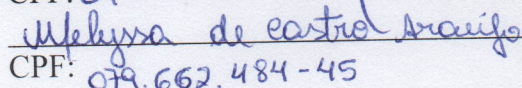 Mfelyssa de Castro Araújo
CPF: 079.662.484-45